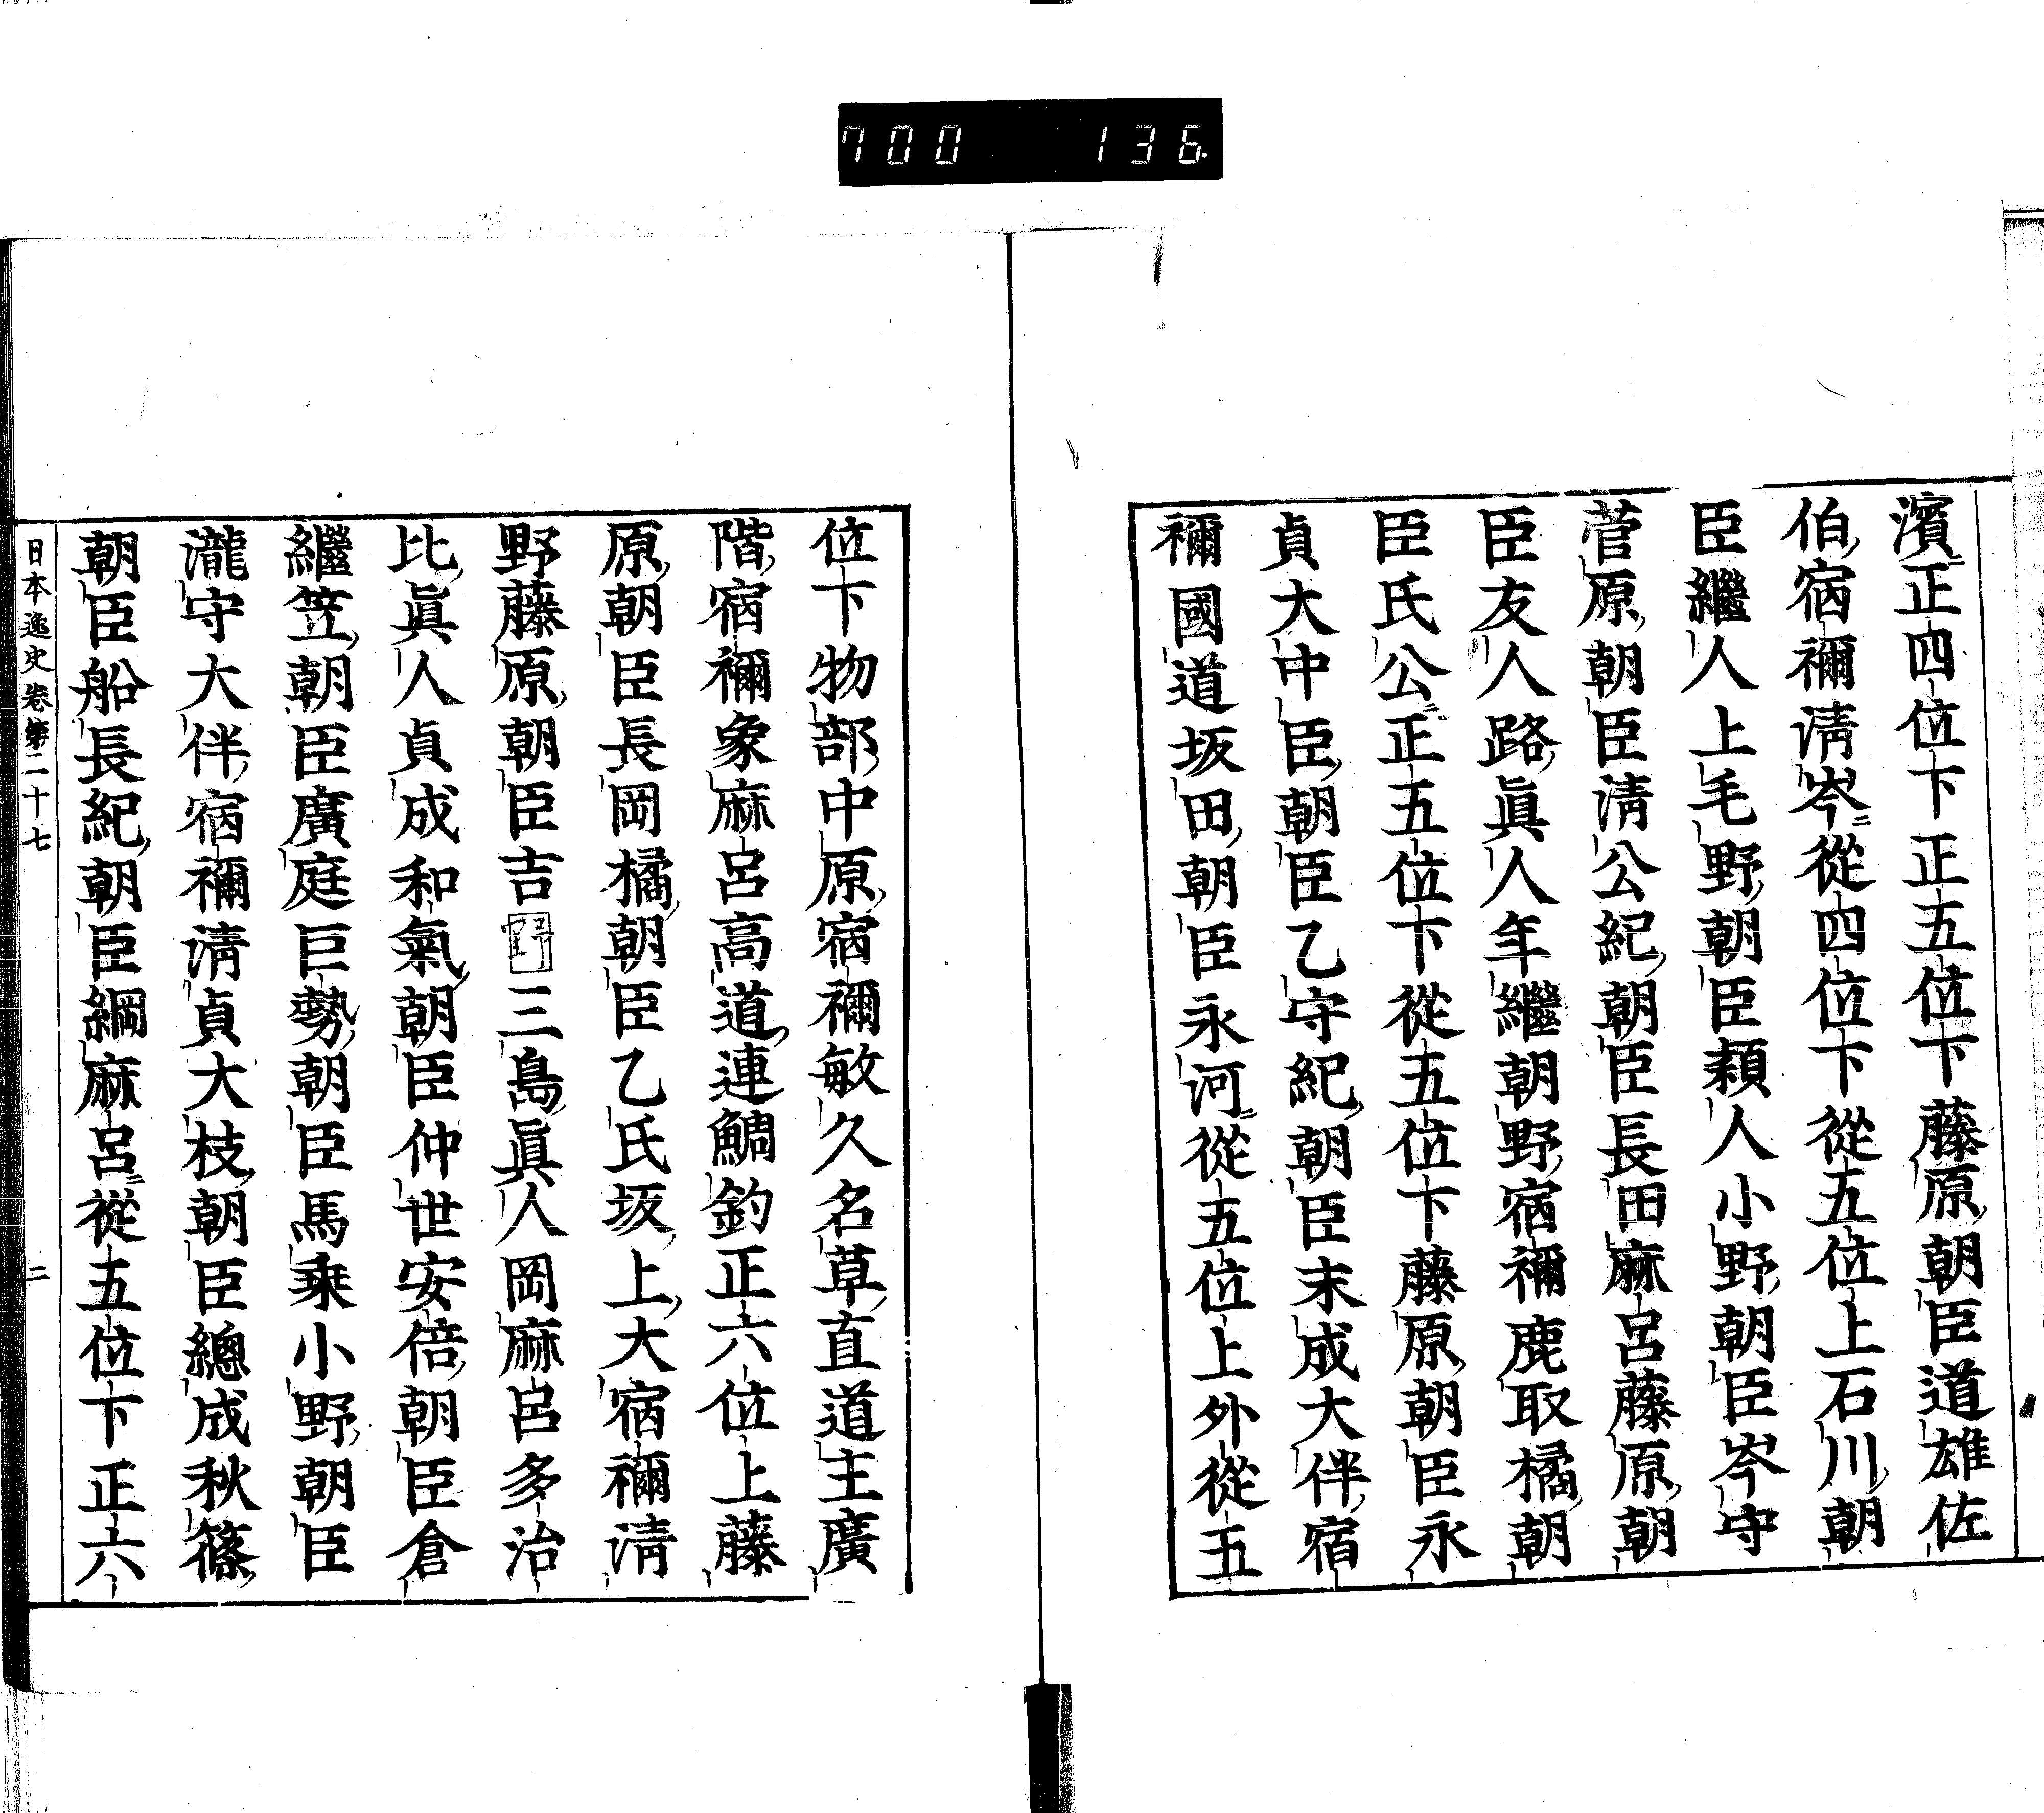 700 136.
濱正四位下正五位下藤原朝臣道雄佐
伯宿禰淸岑從四位下從五位上石川朝
臣繼人上毛野朝臣穎人小野朝臣岑守
菅原朝臣淸公紀朝臣長田麻呂藤原朝
臣友人路眞人年繼朝野宿禰鹿取橘朝
臣氏公正五位下從五位下藤原朝臣永
貞大中臣朝臣乙守紀朝臣末成大伴宿
禰國道坂田朝臣永河從五位上外從五
位下物部中原宿禰敏久名草直道主廣
階宿禰象麻呂高道連鯛釣正六位上藤
原朝臣長岡橘朝臣乙氏坂上大宿禰淸
野藤原朝臣吉野三島眞人岡麻呂多治
比眞人貞成和氣朝臣仲世安倍朝臣倉
繼笠朝臣廣庭巨勢朝臣馬乘小野朝臣
瀧守大伴宿禰淸貞大枝朝臣總成秋篠
朝臣船長紀朝臣綱麻呂從五位下正六
日本逸史卷第二十七 二